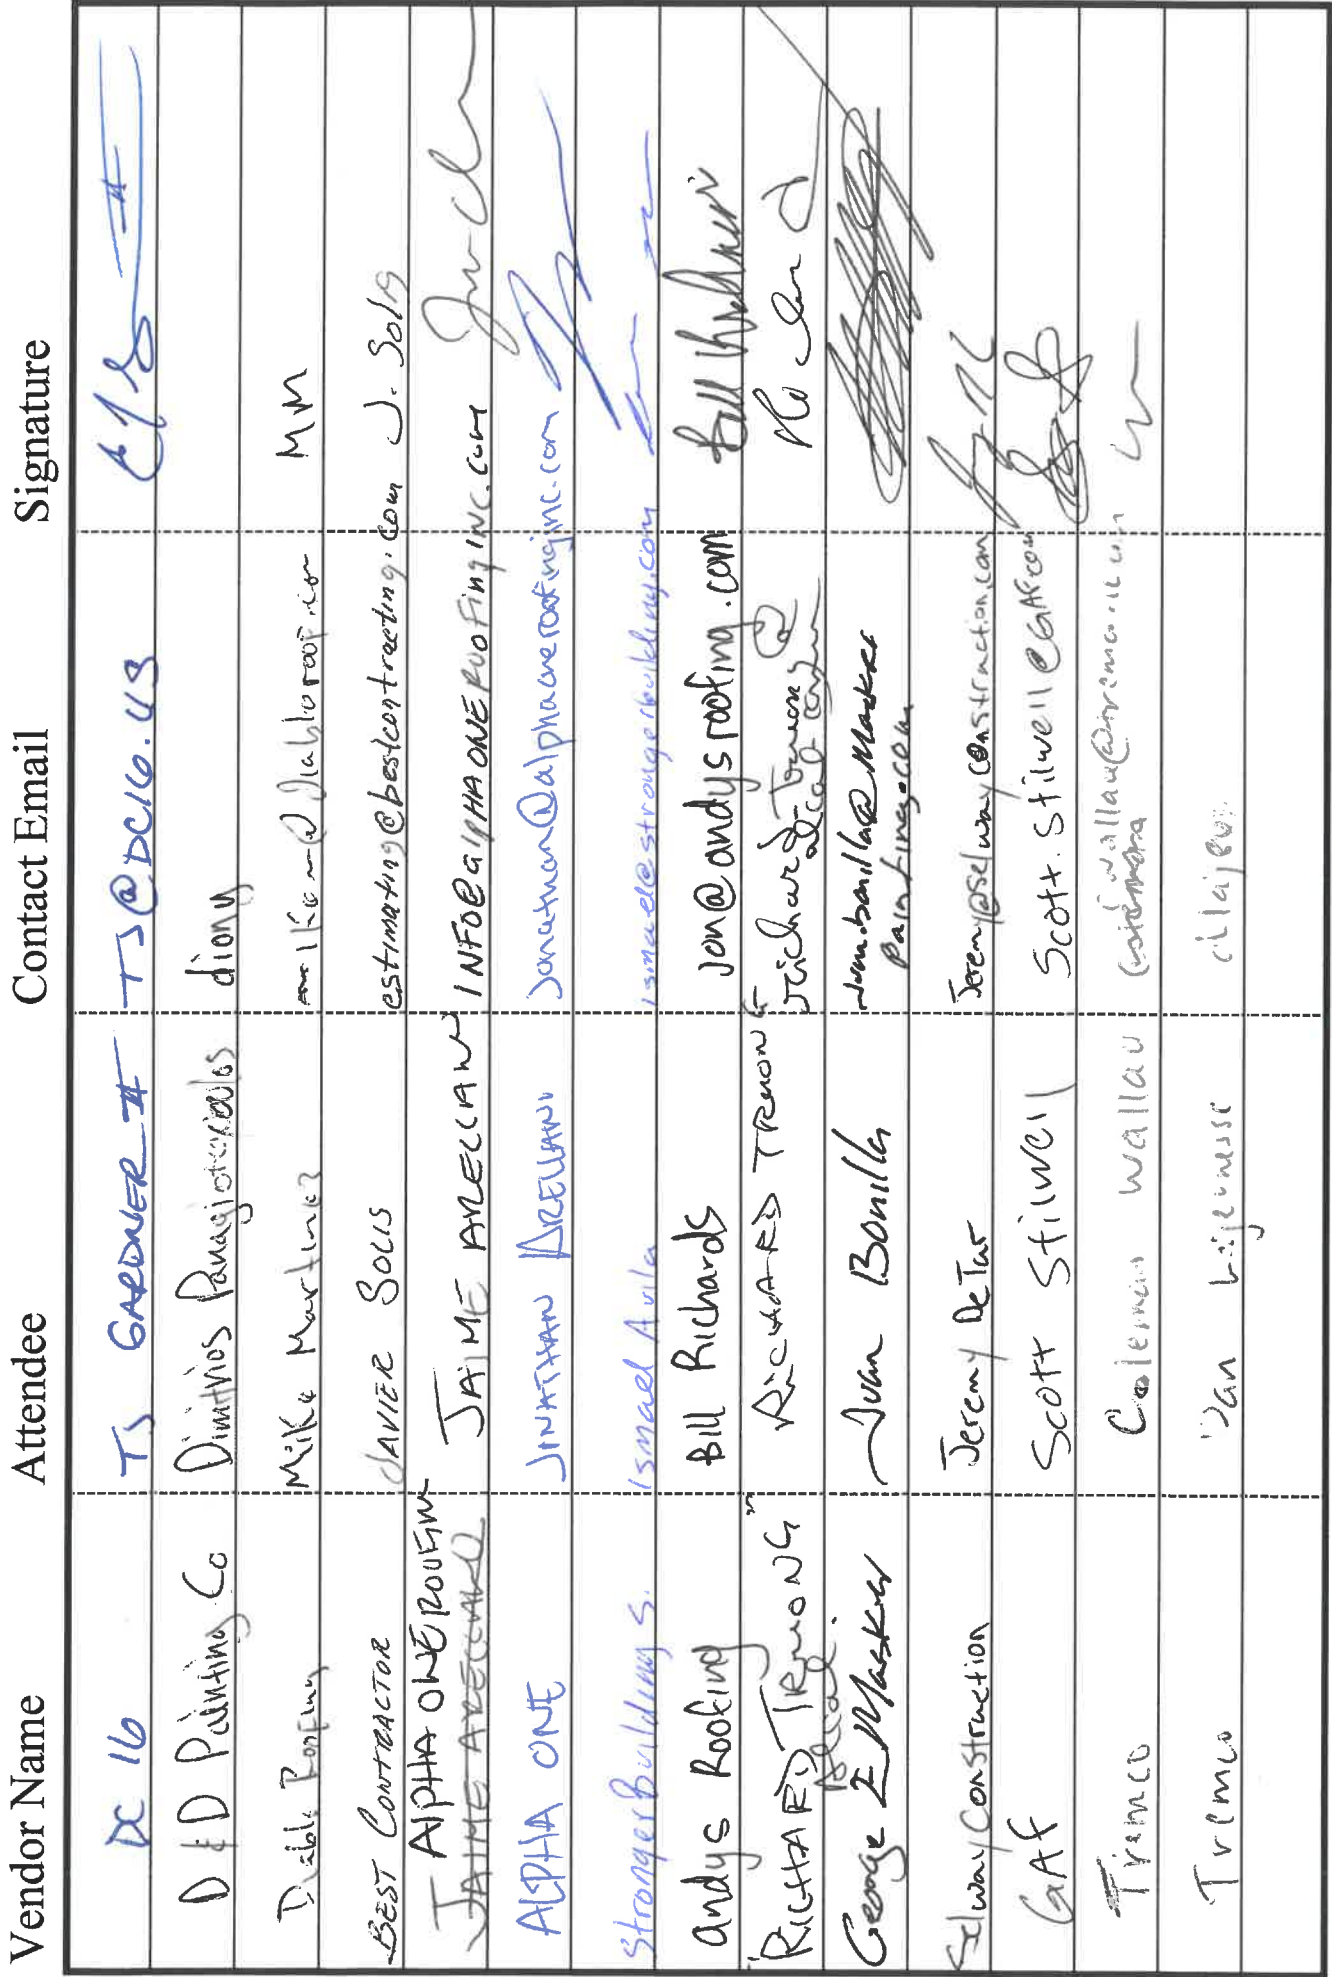 Vendor Name Attendee Contact Email Signature
DC 16 TJ GARDNER II TJ@DC16.US
D & D Painting Co Dimitrios diony
Roofing Mike Martinez MM
BEST CONTRACTOR JAVIER SOLIS estimating@bestcontracting.com J. Solis
AlpHA ONE ROOFING JAIME ARELLANO INFO@alpHAONEROOFingINC.com
JAIME ARELLANO
ALPHA ONE JONATHAN ARELLANO Jonathan@alphaoneroofinginc.com
Stronger Building S. Ismael Avila ismael@strongerbuilding.com
andys Roofing Bill Richards jon@andysroofing.com
RICHARD TRUONG RICHARD TRUONG
George E Masker Juan Bonilla Juan.bonilla@Masker
Painting.com
Selway Construction Jeremy DeTar Jeremy@selwayconstruction.com
GAF Scott Stilwell Scott.Stilwell@GAF.com
Tremco Coleman Wallau
Tremco Dan